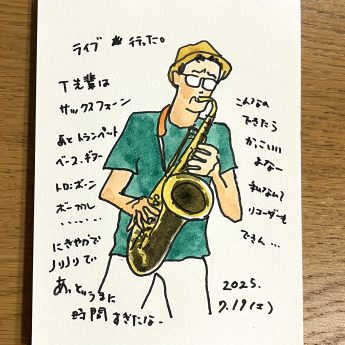 ライブ 行った。
T先輩は
サックスフォーン
あと トランペット
ベース、ギター
トロンボーン
ボーカル
・・・・・・
にぎやかで
ノリノリで
あっというまに
時間 すぎたな〜
こんなの
できたら
かっこいい
よなー
私なんて
リコーダーも
できん…
2025.
7.19(土)